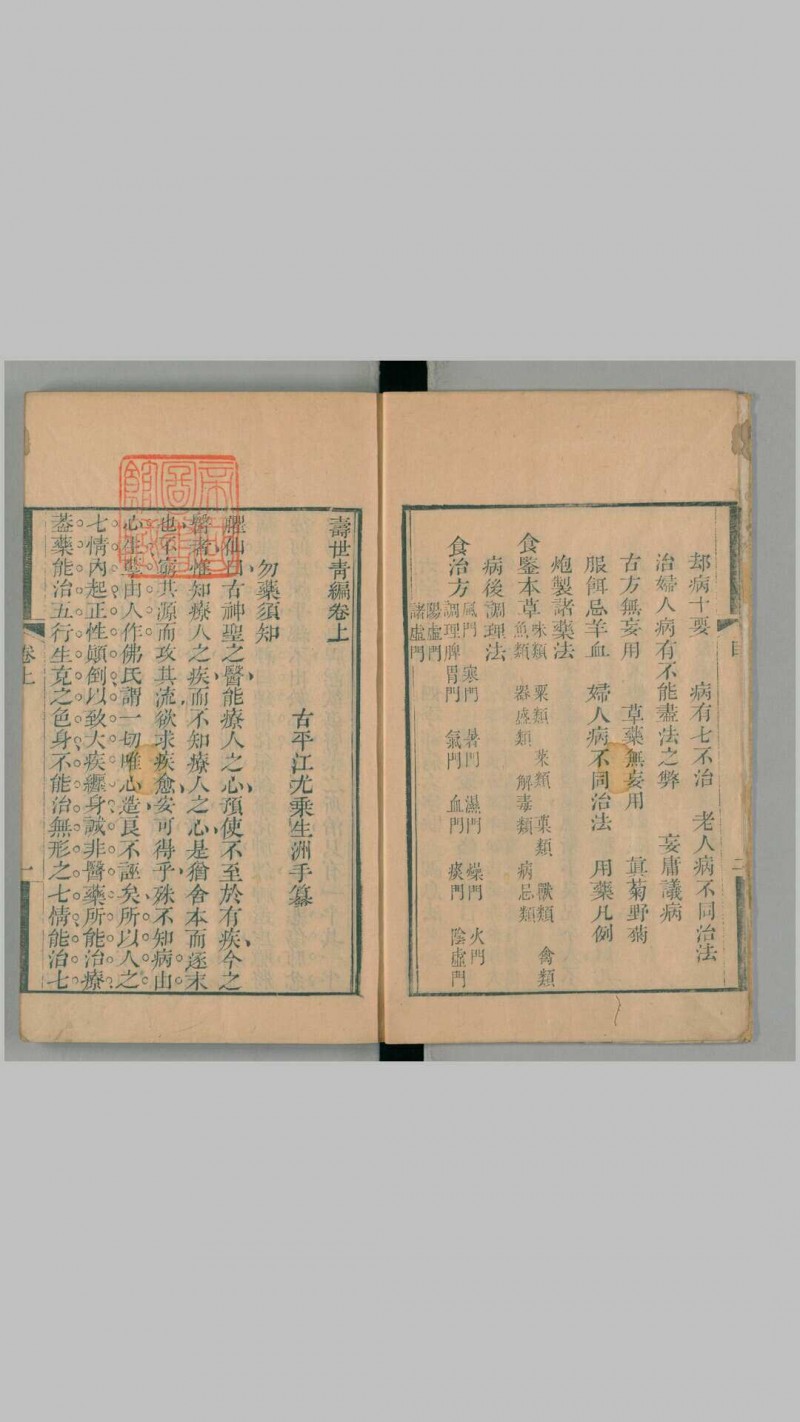 目
二
却病十要　病有七不治　老人病不同治法
治婦人病有不能盡法之弊　妄庸議病
古方無妄用　草藥無妄用　眞菊野菊
服餌忌羊血　婦人病不同治法　用藥凡例
炮製諸藥法
食鑒本草
味類　粟類　菜類　菓類　獸類　禽類
魚類　器盛類　解毒類　病忌類
病後調理法
食治方
風門　寒門　暑門　濕門　燥門　火門
調理脾胃門　氣門　血門　痰門　陰虛門
陽虛門
諸虛門
壽世青編卷上
古平江尤乘生洲手纂
勿藥須知
臞仙曰古神聖之醫能療人之心預使不至於有疾今之
醫者惟知療人之疾而不知療人之心是猶舍本而逐末
也不窮其源而攻其流欲求疾愈安可得乎殊不知病由
心生孽由人作佛氏謂一切唯心造良不誣矣所以人之
七情內起正性顛倒以致大疾纏身誠非醫藥所能治療
葢藥能治五行生克之色身不能治無形之七情能治七
卷上
一